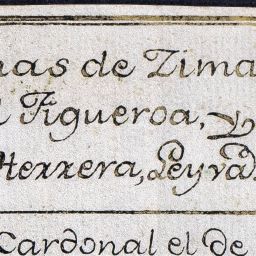 nas de Zima
Figueroa, y
Herrera, Ley va
Cardonal el de